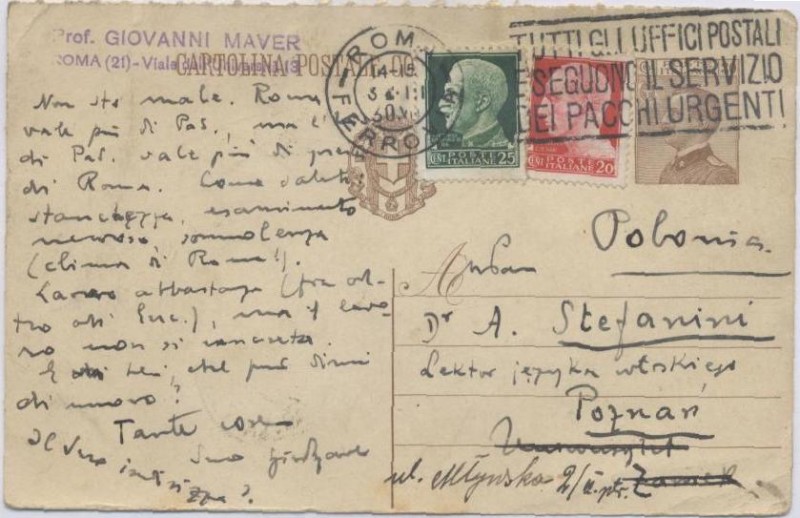 Prof. GIOVANNI MAVER
ROMA (21) - Viale
CARTOLINA POSTALE
ROMA
14-15
FERROVIA
TUTTI GLI UFFICI POSTALI
ESEGUONO IL SERVIZIO
DEI PACCHI URGENTI
POSTE
ITALIANE
CENT. 25
POSTE
ITALIANE
CENT. 20
Non sto male. Roma
vale più di Pad., ma
di Pad. vale più di
di Roma. Come salute
stanchezza, esaurimento
nervoso, sonnolenza
(clima di Roma!).
Lavoro abbastanza (fra al-
tro all' Enc.), ma il lavo-
ro non si
E Lei, che può dirmi
di nuovo?
Tante cose
Suo Giovanni
Il Suo indi-
rizzo?
Polonia
Dr A. Stefanini
Lektor języka włoskiego
Poznań
Uniwersytet
ul. Młyńska 2/II. ptr. Zamek